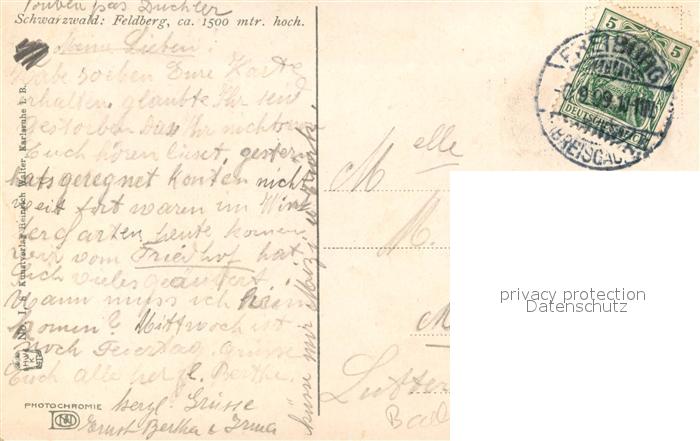 Schwarzwald: Feldberg, ca. 1500 mtr. hoch.
Meine Lieben!
Habe soeben Eure Karte
erhalten, glaubte Ihr seid
gestorben das Ihr nichts von
Euch hören lässt, gestern
hats geregnet konten nicht
weit fort waren im Win
tergarten heute komen
wir vom Friedhof hat
sich vieles geändert.
Wann muss ich heim
komen? Mittwoch ist
noch Feiertag. Grüsse
Euch alle herzl. Berthe.
herzl. Grüsse
Ernst Bertha & Irma
küsse mir Mizi u
No. I. 6 Kunstverlag Heinrich Walter, Karlsruhe I. B.
PHOTOCHROMIE
Melle
M.
FREIBURG
BREISGAU
5 5
DEUTSCHES REICH
privacy protection
Datenschutz